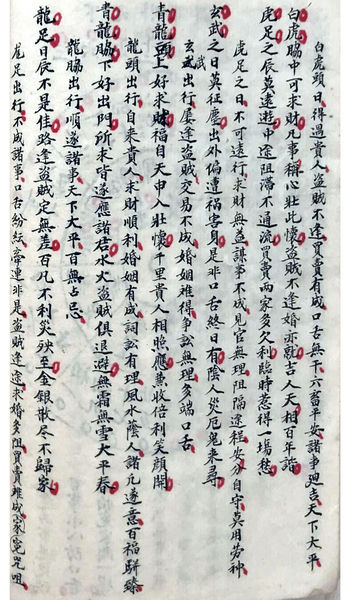 白虎頭日得遇貴人盜賊不逢買賣有成口舌無干六畜平安諸事廻吉天下大平
白虎脇中可求財凡事稱心壯此懷盜賊不逢婚亦就吉人天相百年諧
虎足之辰莫遠遊中途阻滯不通流買賣兩家多欠利臨時惹得一場愁
虎足之日不可遠行求財無益謀事不成見官無理阻隔途程安分自守莫用勞神
玄武之日莫征慶出外偏遭禍害身是非口舌終日有陰人災厄鬼來尋
玄武出行屢逢盜賊交易不成婚姻難得爭訟無理多端口舌
青龍頭上好求財福自天申入壯懷千里貴人相照應慕收倍利笑顏開
龍頭出行自來貴人求財順利婚姻有成詞訟有理風水蔭人諸凢遂意百福駢臻
青龍脇下好出門所求皆遂應諸君水火盜賊俱退避無霜無雪大平春
龍脇出行順遂諸事天下大平百無占忌
龍足日辰不是佳路逢盜賊定無差百凡不利災殃至金銀散尽不歸家
龍足出行不成諸事口舌紛紜常連非是盜賊逢途求婚多阻買賣難成家冤咒咀